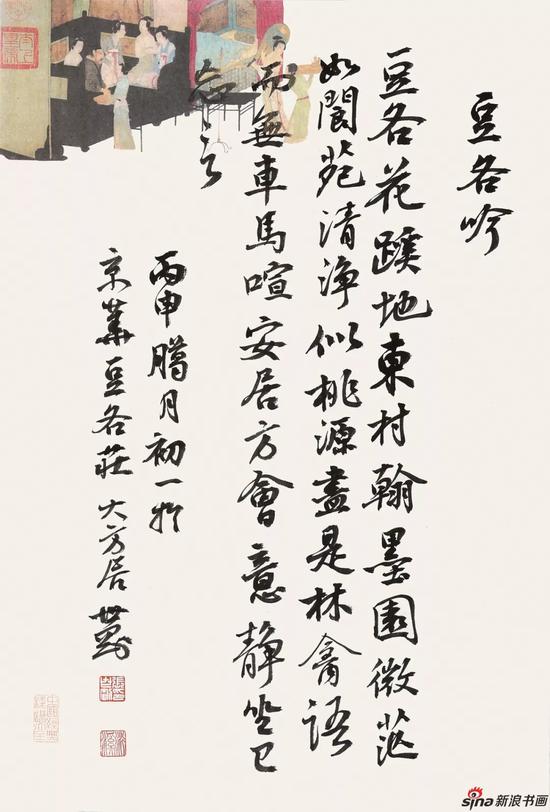 豆各吟
豆各花蹊地東村翰墨園微茫
如閬苑清淨似桃源盡是林禽語
而無車馬喧安居方會意静坐已
忘言
丙申臘月初一於
京華豆各莊大方居世
sina新浪书画